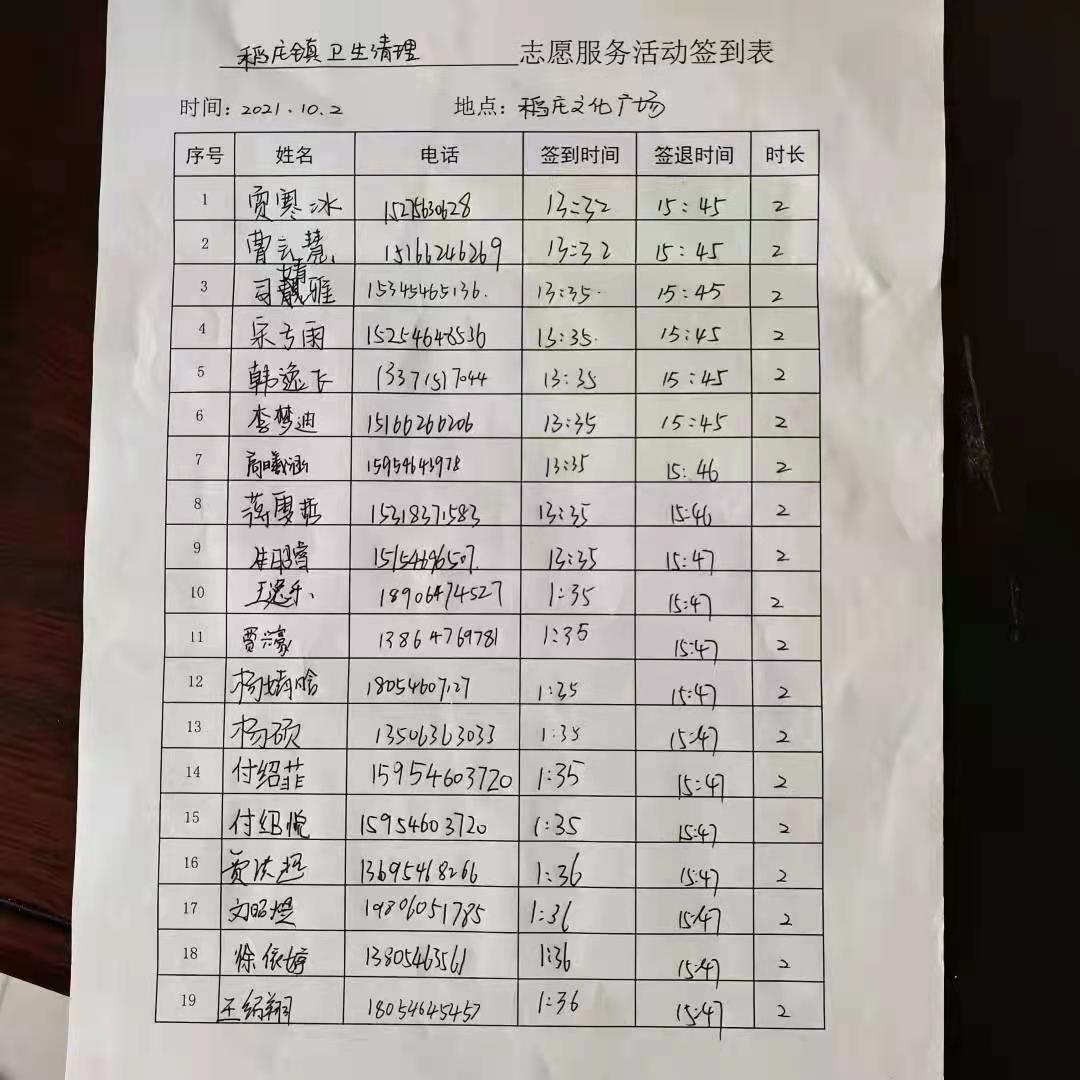 稻庄镇卫生清理 志愿服务活动签到表
时间：2021.10.2 地点：稻庄文化广场
序号 姓名 电话 签到时间 签退时间 时长
1 贾寒冰 15275630628 13:32 15:45 2
2 曹云慧 15166246269 13:32 15:45 2
3 司靓雅 15345465136. 13:35. 15:45 2
4 宋雨 15254648536 13:35. 15:45 2
5 韩逸飞 13371517044 13:35 15:45 2
6 李梦迪 15166266206 13:35 15:45 2
7 曦涵 15954643978 13:35 15:46 2
8 蒋雯哲 15318371583 13:35 15:46 2
9 崔睿 15154696507. 13:35 15:47 2
10 王逸乐 18906474527 1:35 15:47 2
11 贾豪 13864769781 1:35 15:47 2
12 杨婧晗 18054607127 1:35 15:47 2
13 杨硕 13506363033 1:35 15:47 2
14 付绍菲 15954603720 1:35 15:47 2
15 付绍悦 15954603720 1:35 15:47 2
16 贾洪超 13695468266 1:36 15:47 2
17 刘昭煜 19806051785 1:36 15:47 2
18 徐依婷 13805463561 1:36 15:47 2
19 王绍翔 18054645457 1:36 15:47 2